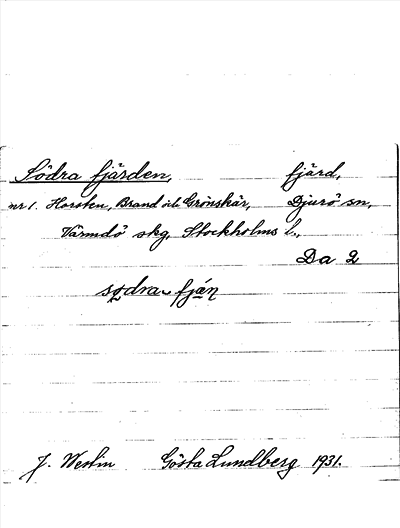 Södra fjärden, fjärd,
nr 1. Horsten, Brand och Grönskär, Djurö sn,
Värmdö skg, Stockholms l.,
Da 2
sǫdra fján
J. Westin Gösta Lundberg 1931.